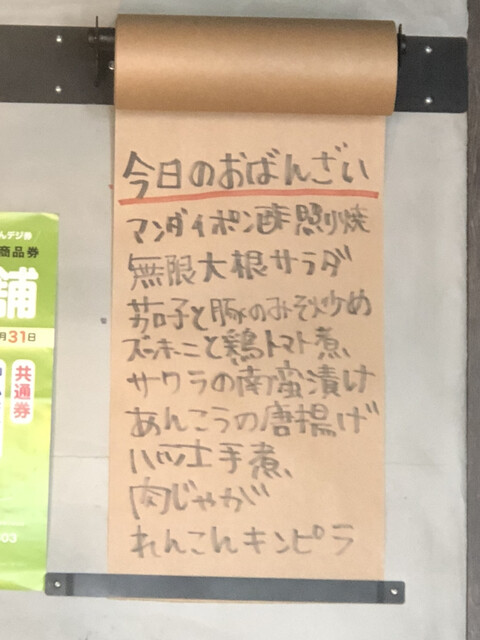 今日のおばんざい
マンダイポン酢照り焼
無限大根サラダ
茄子と豚のみそ炒め
ズッキーニと鶏トマト煮、
サワラの南蛮漬け
あんこうの唐揚げ
ハツ土手煮、
肉じゃが
れんこんキンピラ
んデジ券
商品券
舗
月31日
共通券
03